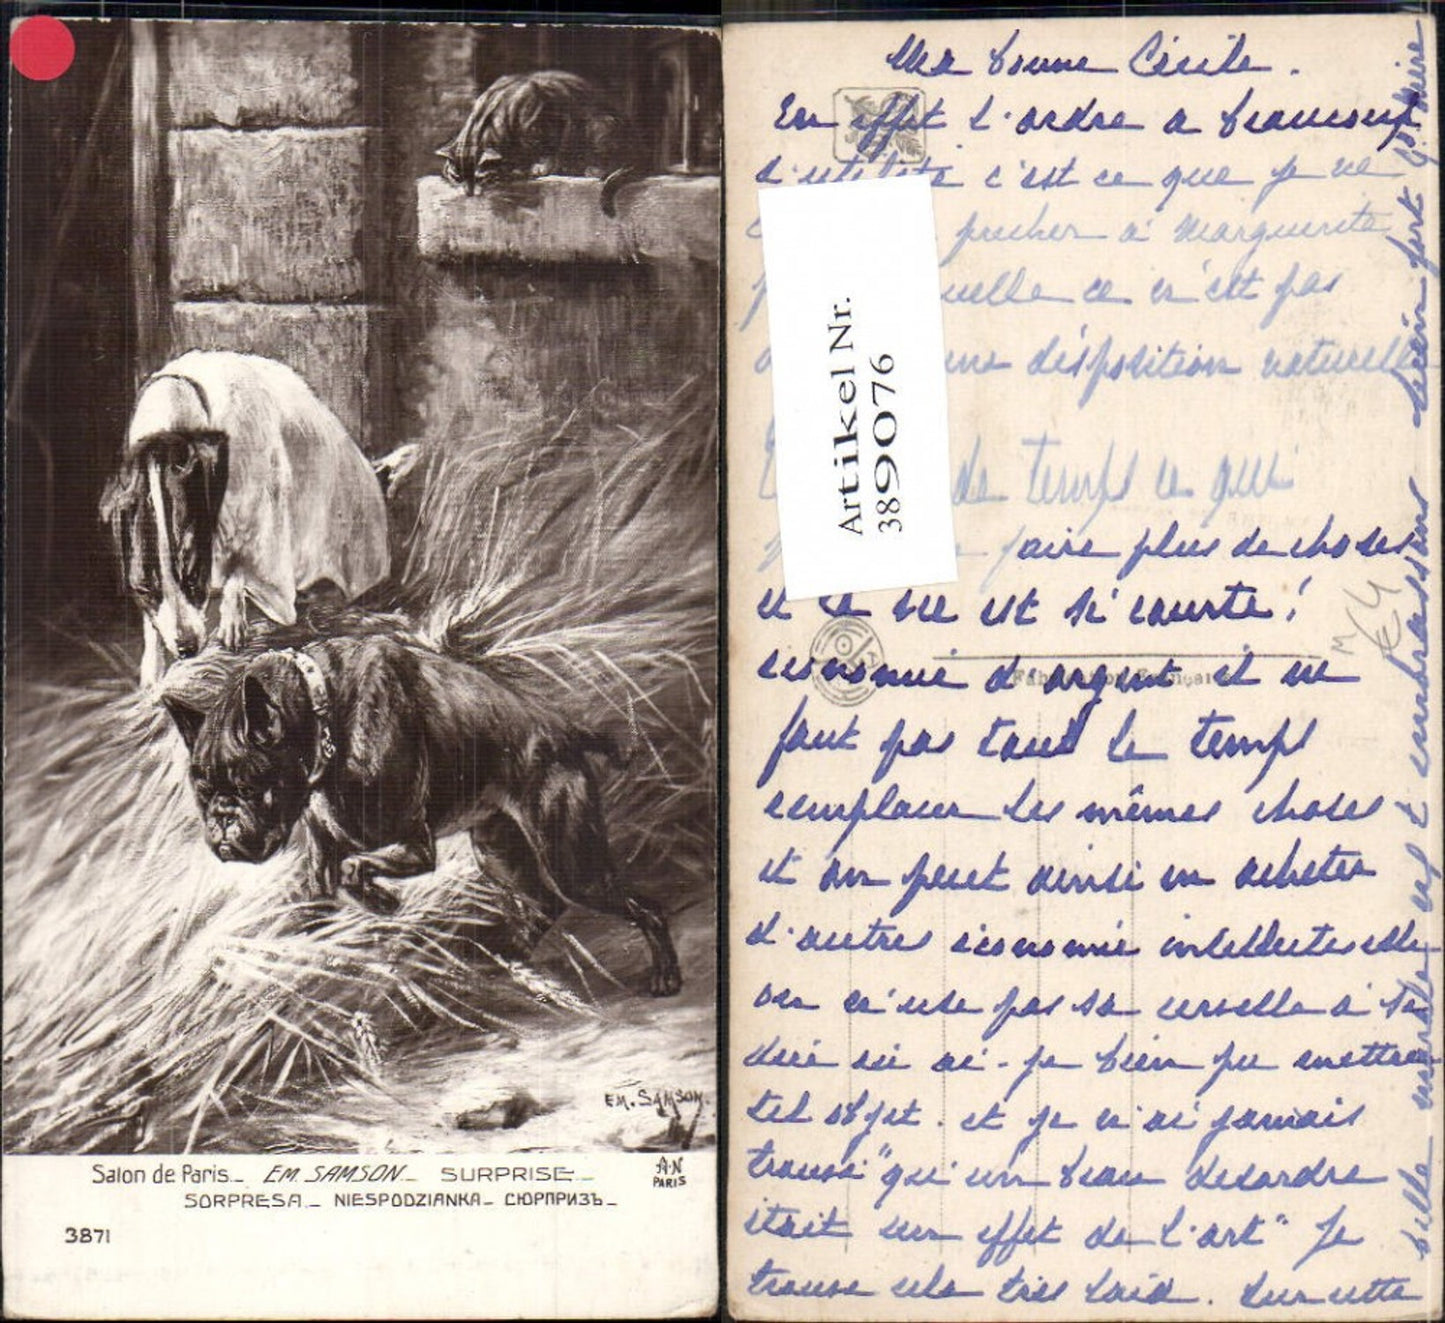 EM. SAMSON.
Salon de Paris_ EM. SAMSON_ SURPRISE_
A·N
PARIS
SORPRESA_ NIESPODZIANKA_ СЮРПРИЗЪ_
3871
Ma bonne Cécile.
En effet l'ordre a beaucoup
d'utilité c'est ce que je ne
prêcher à Marguerite
elle ce n'est pas
une disposition naturelle
de temps ce qui
faire plus de choses
et la vie est si courte!
économie d'argent il ne
faut pas tout le temps
remplacer les mêmes choses
et on peut ainsi en acheter
d'autres économie intellectuelle
on n'use pas sa cervelle à se
dire où ai-je bien pu mettre
tel objet. et je n'ai jamais
trouvé "qu'un beau désordre
était un effet de l'art" Je
trouve cela très laid. Sur cette
belle morale embrassons
fort
Artikel Nr.
389076
Fabrication Française